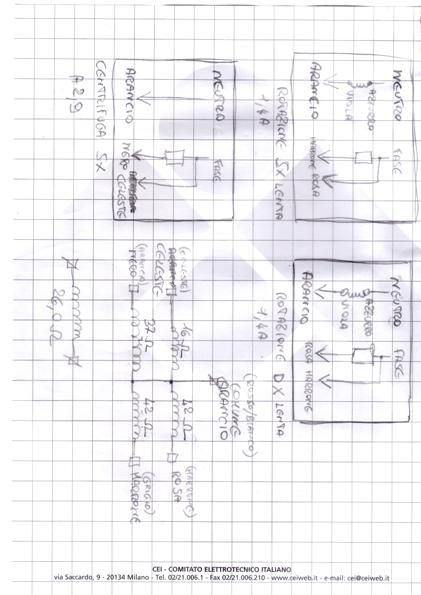 NEUTRO FASE
AZZURRO
VIOLA
ARANCIO MARRONE ROSA
ROTAZIONE SX LENTA
1,4A
NEUTRO FASE
AZZURRO
VIOLA
ARANCIO ROSA MARRONE
ROTAZIONE DX LENTA
1,4A
NEUTRO FASE
ARANCIO NERO CELESTE
CENTRIFUGA SX
A 2,9
(ROSSO/BIANCO)
COMUNE
ARANCIO
(CELESTE)
CELESTE
16 Ω 42 Ω
(MARRONE)
ROSA
(ARANCIO)
NERO
37 Ω 42 Ω
(GRIGIO)
MARRONE
26,0 Ω
CEI - COMITATO ELETTROTECNICO ITALIANO
via Saccardo, 9 - 20134 Milano - Tel. 02/21.006.1 - Fax 02/21.006.210 - www.ceiweb.it - e-mail: cei@ceiweb.it